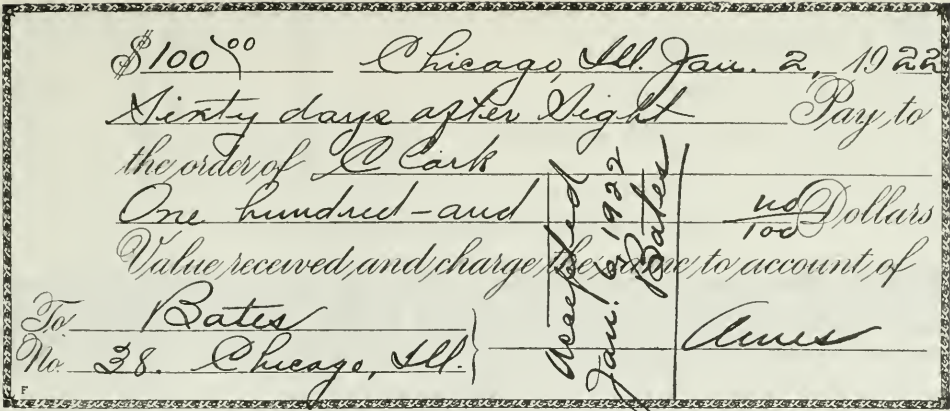 $100 00 Chicago, Ill. Jan. 2, 1922
Sixty days after Sight Pay to
the order of C Cark
One hundred - and no/100 Dollars
Value received and charge the same to account of
To Bates
No. 38. Chicago, Ill.
Ames
Accepted
Jan. 6, 1922
Bates
F